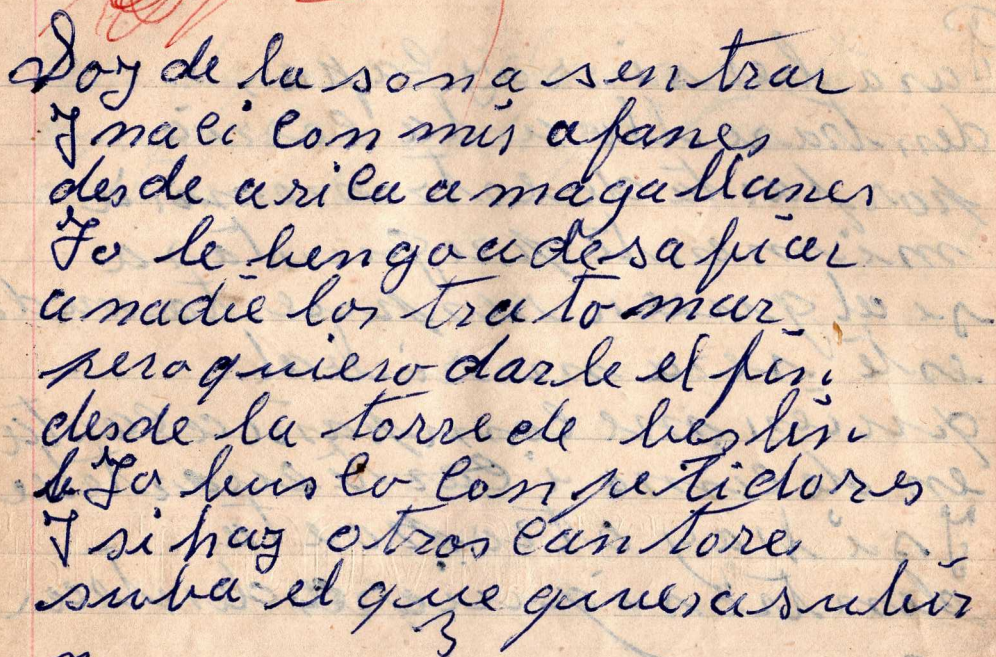 Soy de la sona sentrar
Y naci con mis afanes
desde arica a magallanes
Yo le bengo a desafiar
a nadie los trato mar
pero quiero darle el fin.
desde la torre de berlin
Yo busco conpetidores
Y si hay otros cantore
suba el que quiera subir
3